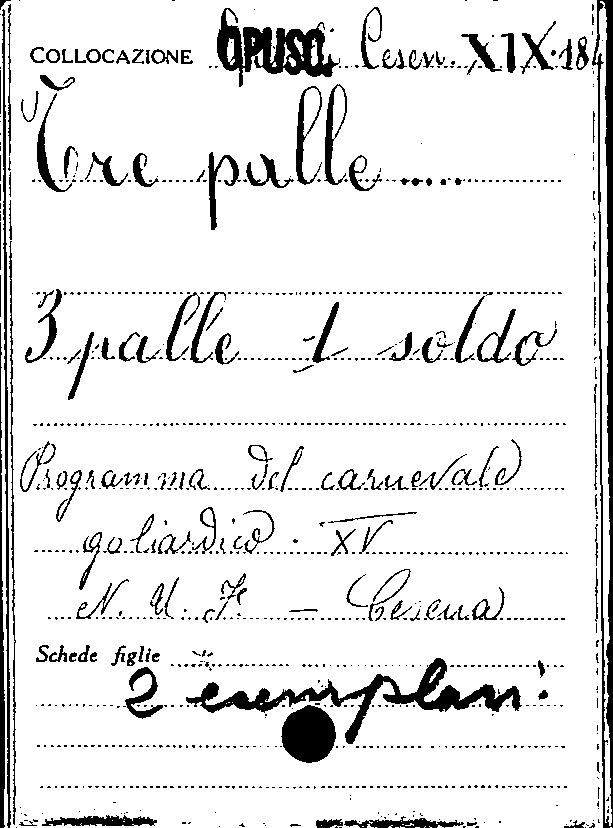 COLLOCAZIONE OPUSC. Cesen. XIX. 184
Tre palle.....
3 palle 1 soldo
Programma del carnevale
goliardico. XV
N. U. F. — Cesena
Schede figlie
2 esemplari